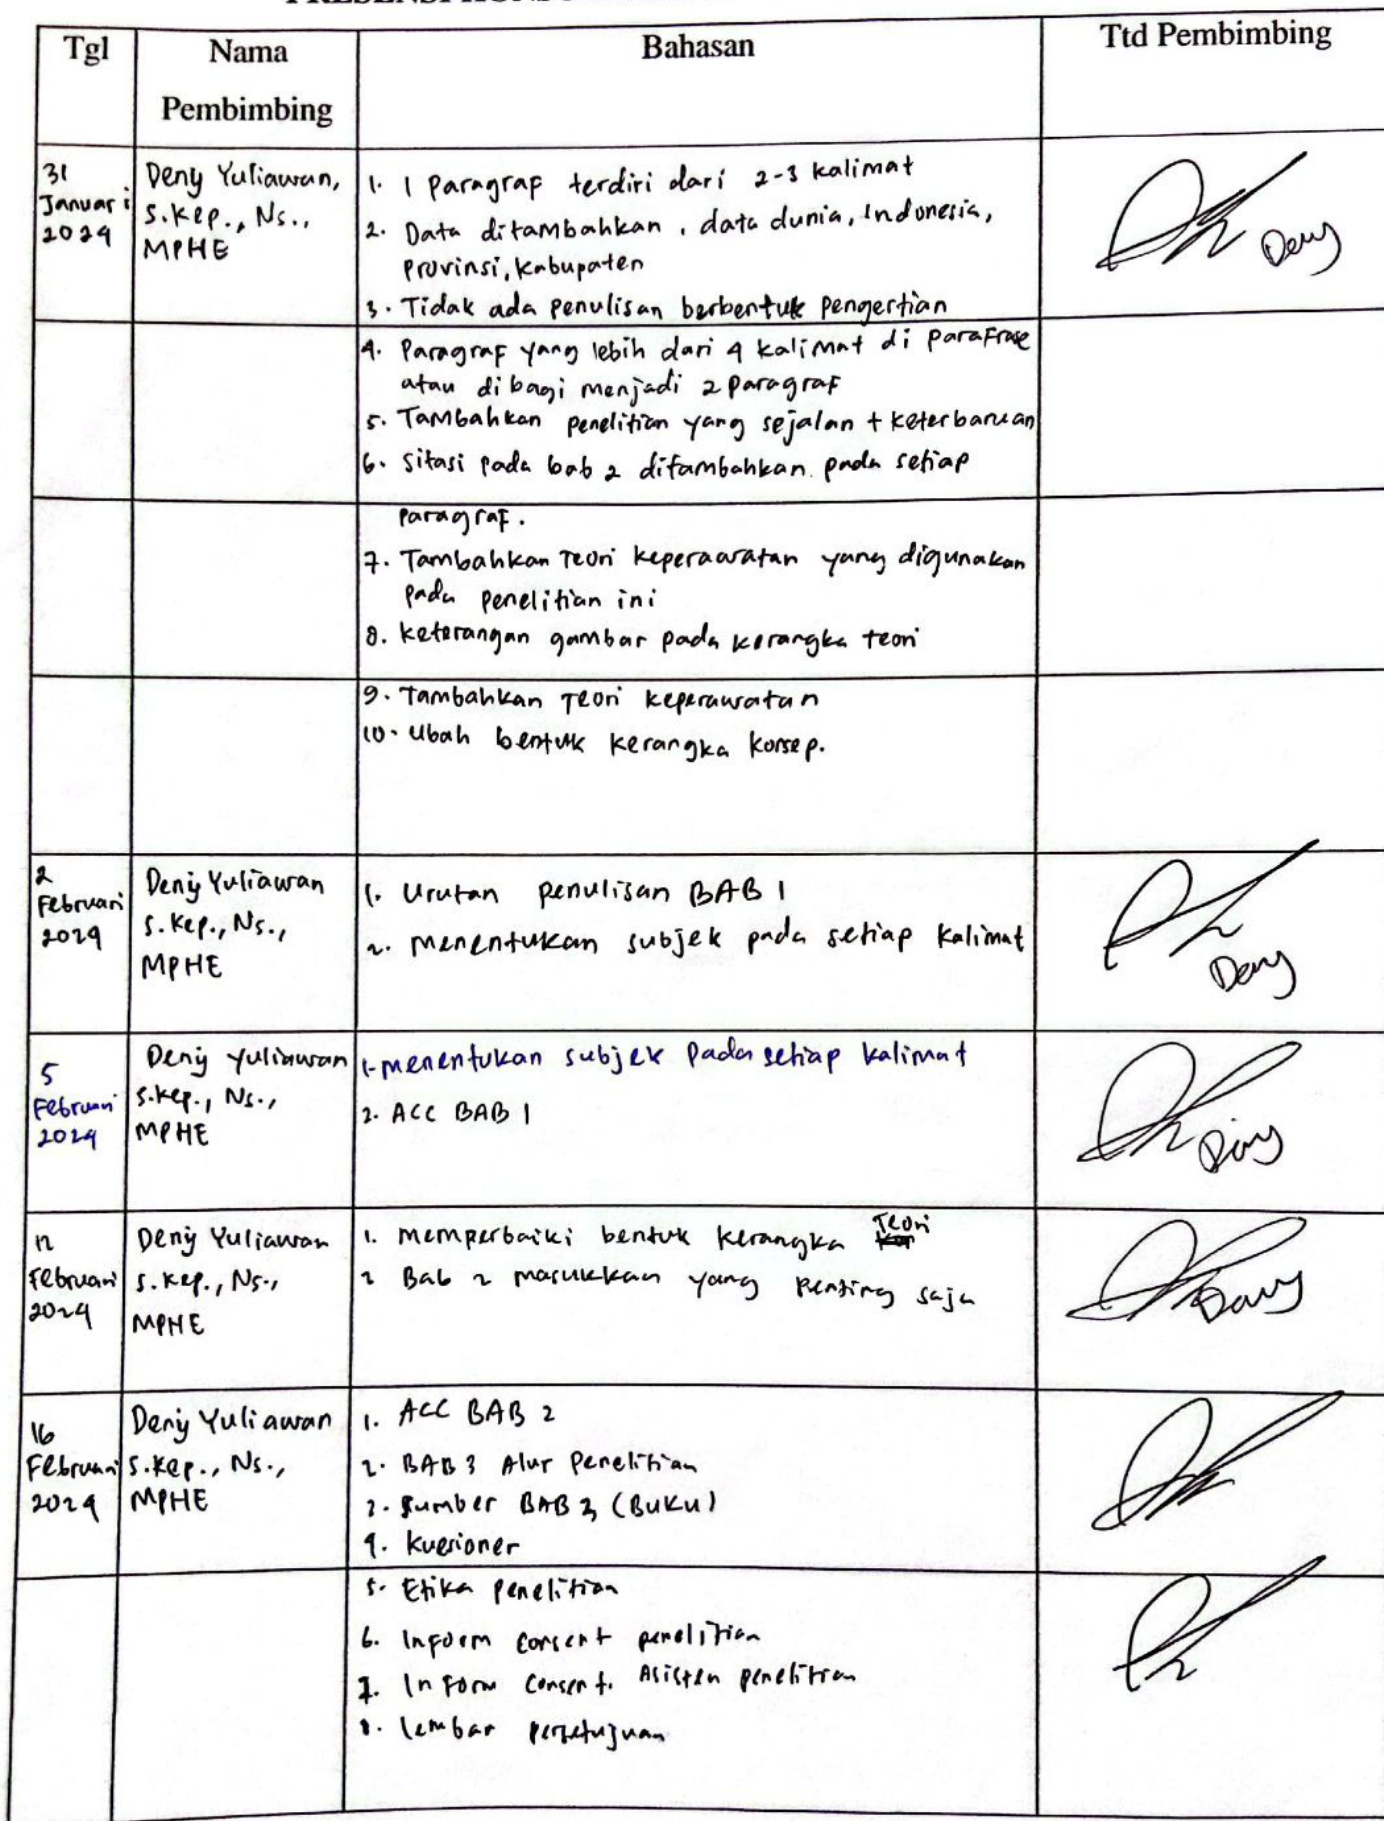 Tgl Nama Pembimbing Bahasan Ttd Pembimbing
31 Januari 2024
Deny Yuliawan,
S.Kep., Ns.,
MPHE
1. 1 Paragraf terdiri dari 2-3 kalimat
2. Data ditambahkan, data dunia, Indonesia,
Provinsi, Kabupaten
3. Tidak ada penulisan berbentuk pengertian
Deny
4. Paragraf yang lebih dari 4 kalimat di parafrase
atau di bagi menjadi 2 paragraf
5. Tambahkan penelitian yang sejalan + keterbaruan
6. Sitasi pada bab 2 ditambahkan pada setiap
paragraf.
7. Tambahkan Teori keperawatan yang digunakan
pada penelitian ini
8. keterangan gambar pada kerangka teori
9. Tambahkan Teori keperawatan
10. Ubah bentuk kerangka konsep.
2
Februari
2024
Deny Yuliawan
S.Kep., Ns.,
MPHE
1. Urutan penulisan BAB 1
2. menentukan subjek pada setiap kalimat
Deny
5
Februari
2024
Deny Yuliawan
S.Kep., Ns.,
MPHE
1. menentukan subjek pada setiap kalimat
2. ACC BAB 1
Deny
12
Februari
2024
Deny Yuliawan
S.Kep., Ns.,
MPHE
1. memperbaiki bentuk kerangka Teori
2 Bab 2 masukkan yang penting saja
Deny
16
Februari
2024
Deny Yuliawan
S.Kep., Ns.,
MPHE
1. ACC BAB 2
2. BAB 3 Alur Penelitian
3. Sumber BAB 3 (Buku)
4. Kuesioner
5. Etika penelitian
6. Inform consent penelitian
7. Inform Consent. Asisten penelitian
8. lembar persetujuan